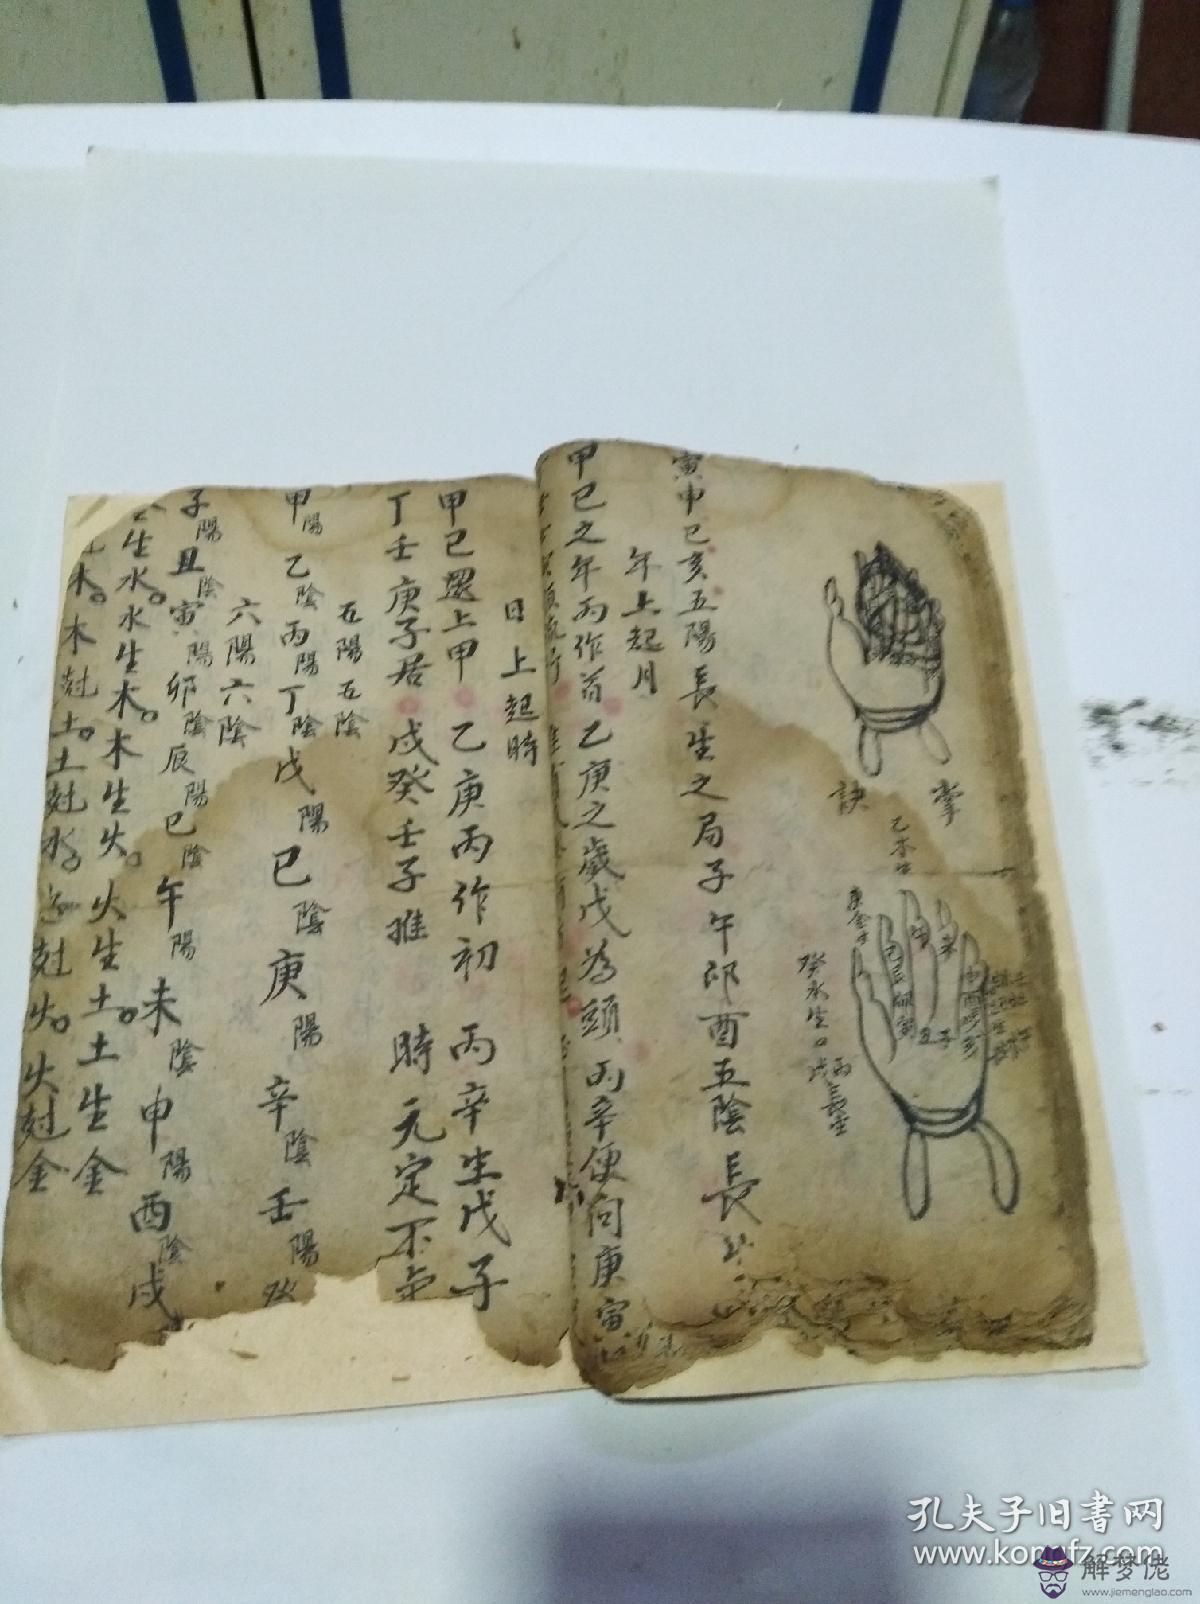 掌訣
乙木生
庚金生
癸水生口
丙戊長生
午
未
巳辰卯寅
丑子
申酉戌亥
寅申巳亥五陽長生之局子午卯酉五陰長生
年上起月
甲己之年丙作首乙庚之歲戊為頭丙辛便向庚寅
日上起時
甲己還上甲乙庚丙作初丙辛生戊子
丁壬庚子居戊癸壬子推時元定不
五陽五陰
甲陽乙陰丙陽丁陰戊陽己陰庚陽辛陰壬陽癸
六陽六陰
子陽丑陰寅陽卯陰辰陽巳陰午陽未陰申陽酉陰戌
生水。水生木。木生火。火生土。土生金
木。木尅土。土尅水。水尅火。火尅金
孔夫子旧书网
www.kongfz.com
解梦佬
www.jiemenglao.com